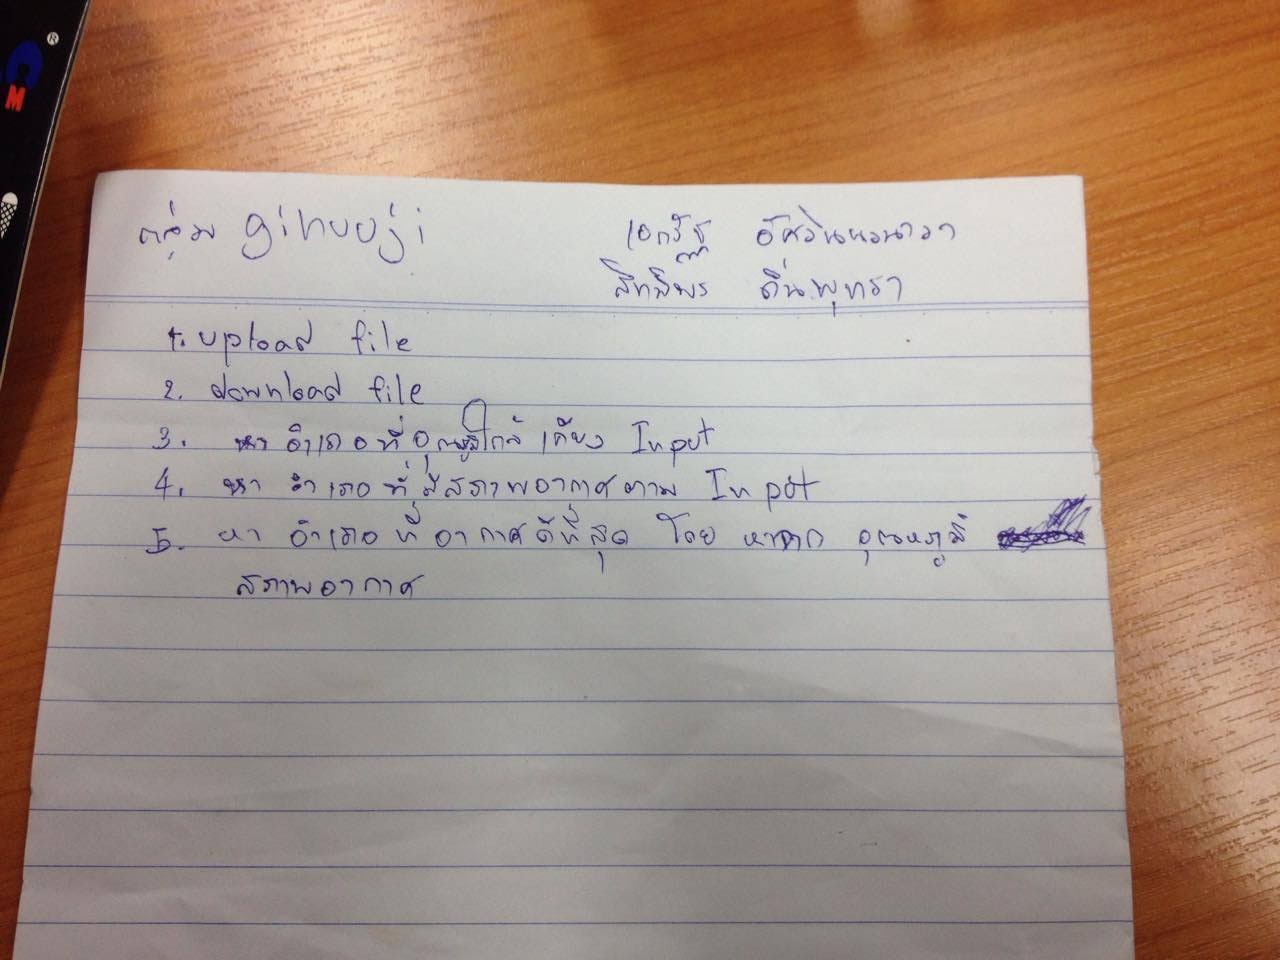 กลุ่ม ginuuji
เอกรัฐ อัศวินนวนาวา
สิทธิพร ถิ่นพุทรา
1. upload file
2. download file
3. หา อำเภอที่อุณหภูมิใกล้เคียง Input
4. หา อำเภอ ที่มีสภาพอากาศตาม Input
5. หา อำเภอ ที่ อากาศดีที่สุด โดย หาจาก อุณหภูมิ
สภาพอากาศ
®
M